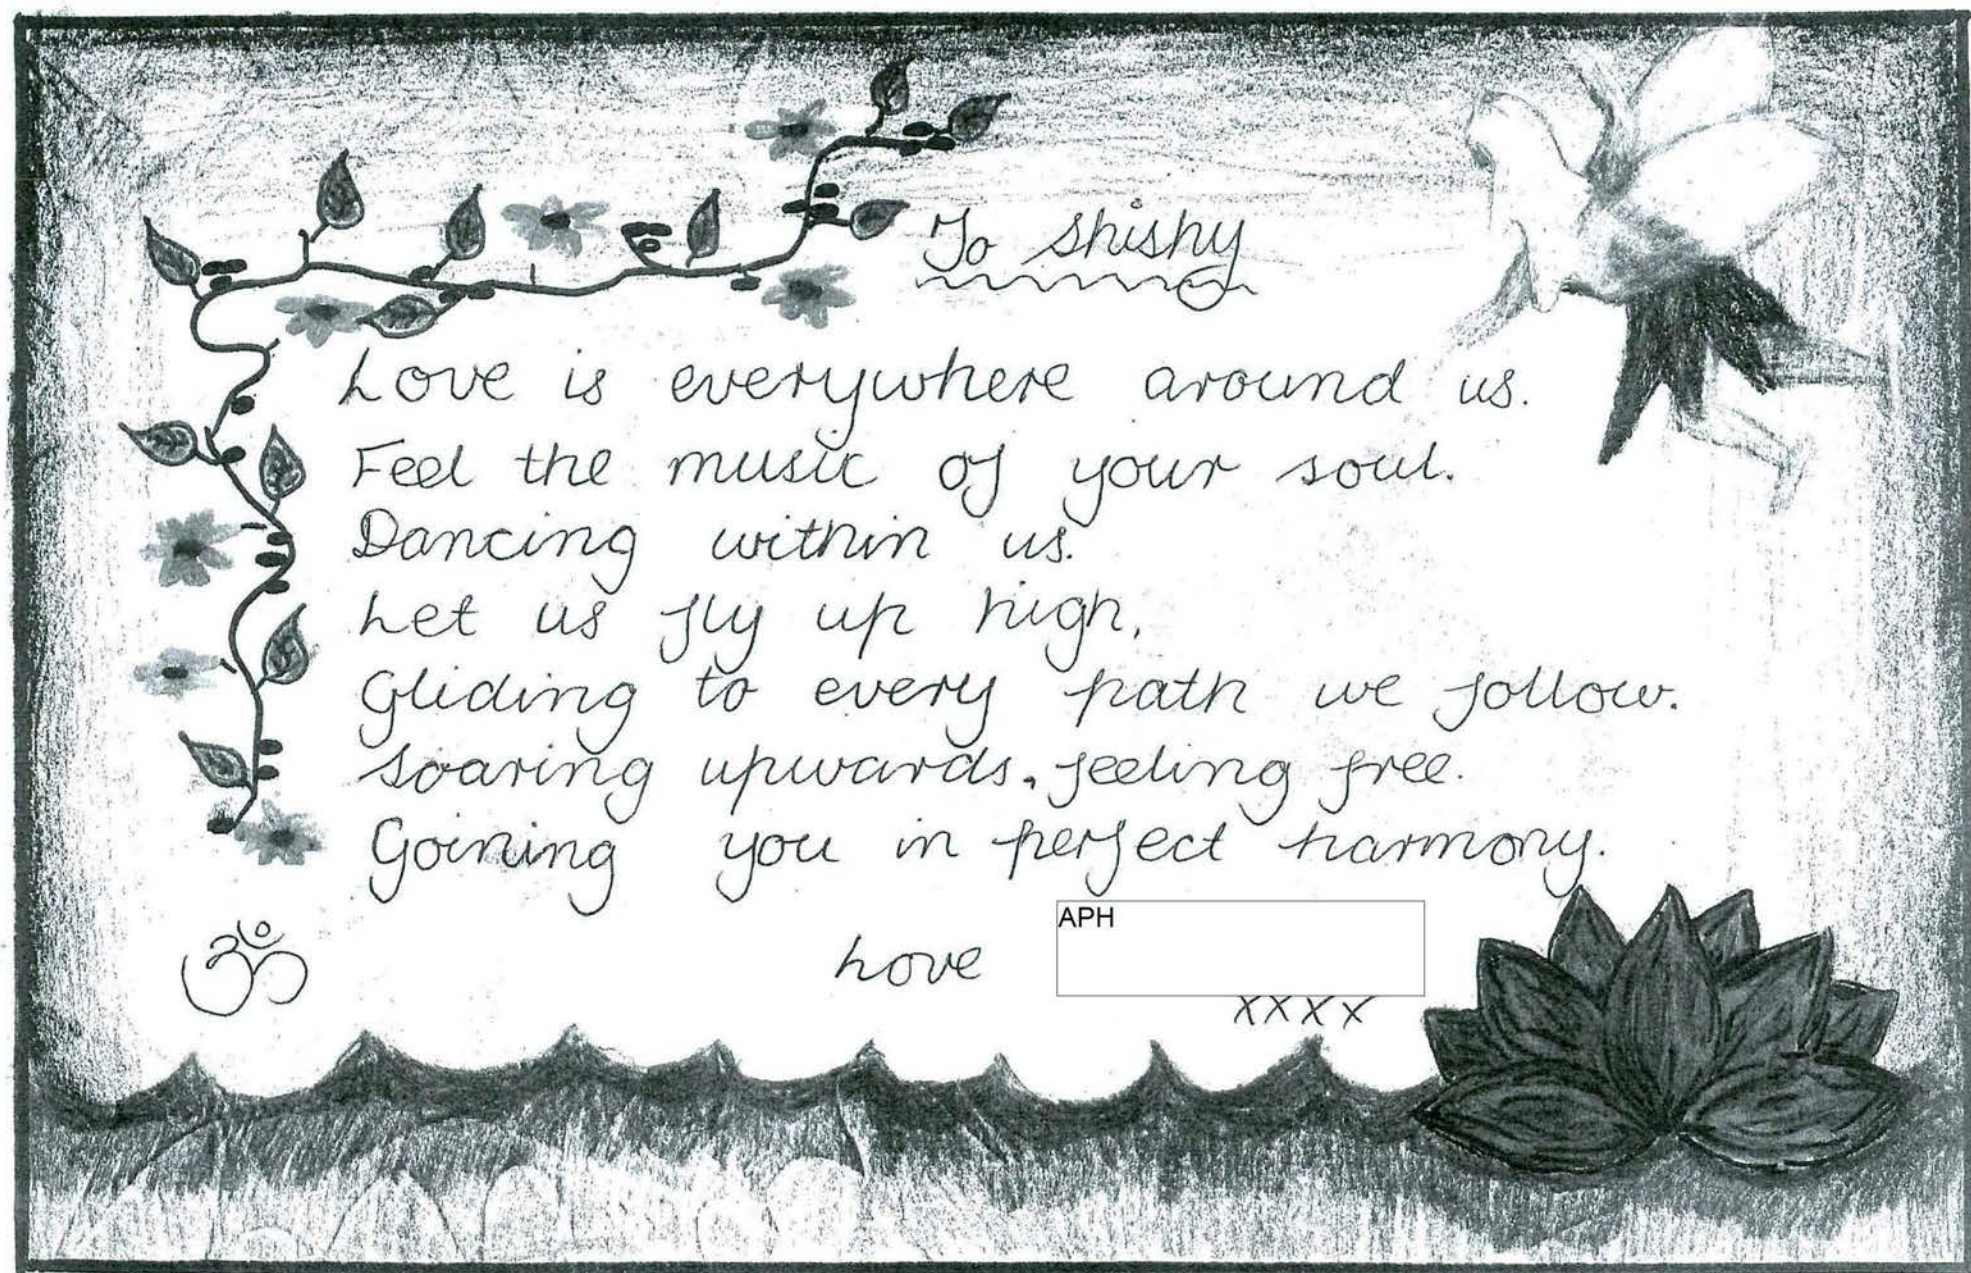 To Shishy
Love is everywhere around us.
Feel the music of your soul.
Dancing within us.
Let us fly up high,
Gliding to every path we follow.
Soaring upwards, feeling free.
Goining you in perfect harmony.
Love APH
xxxx
ॐ